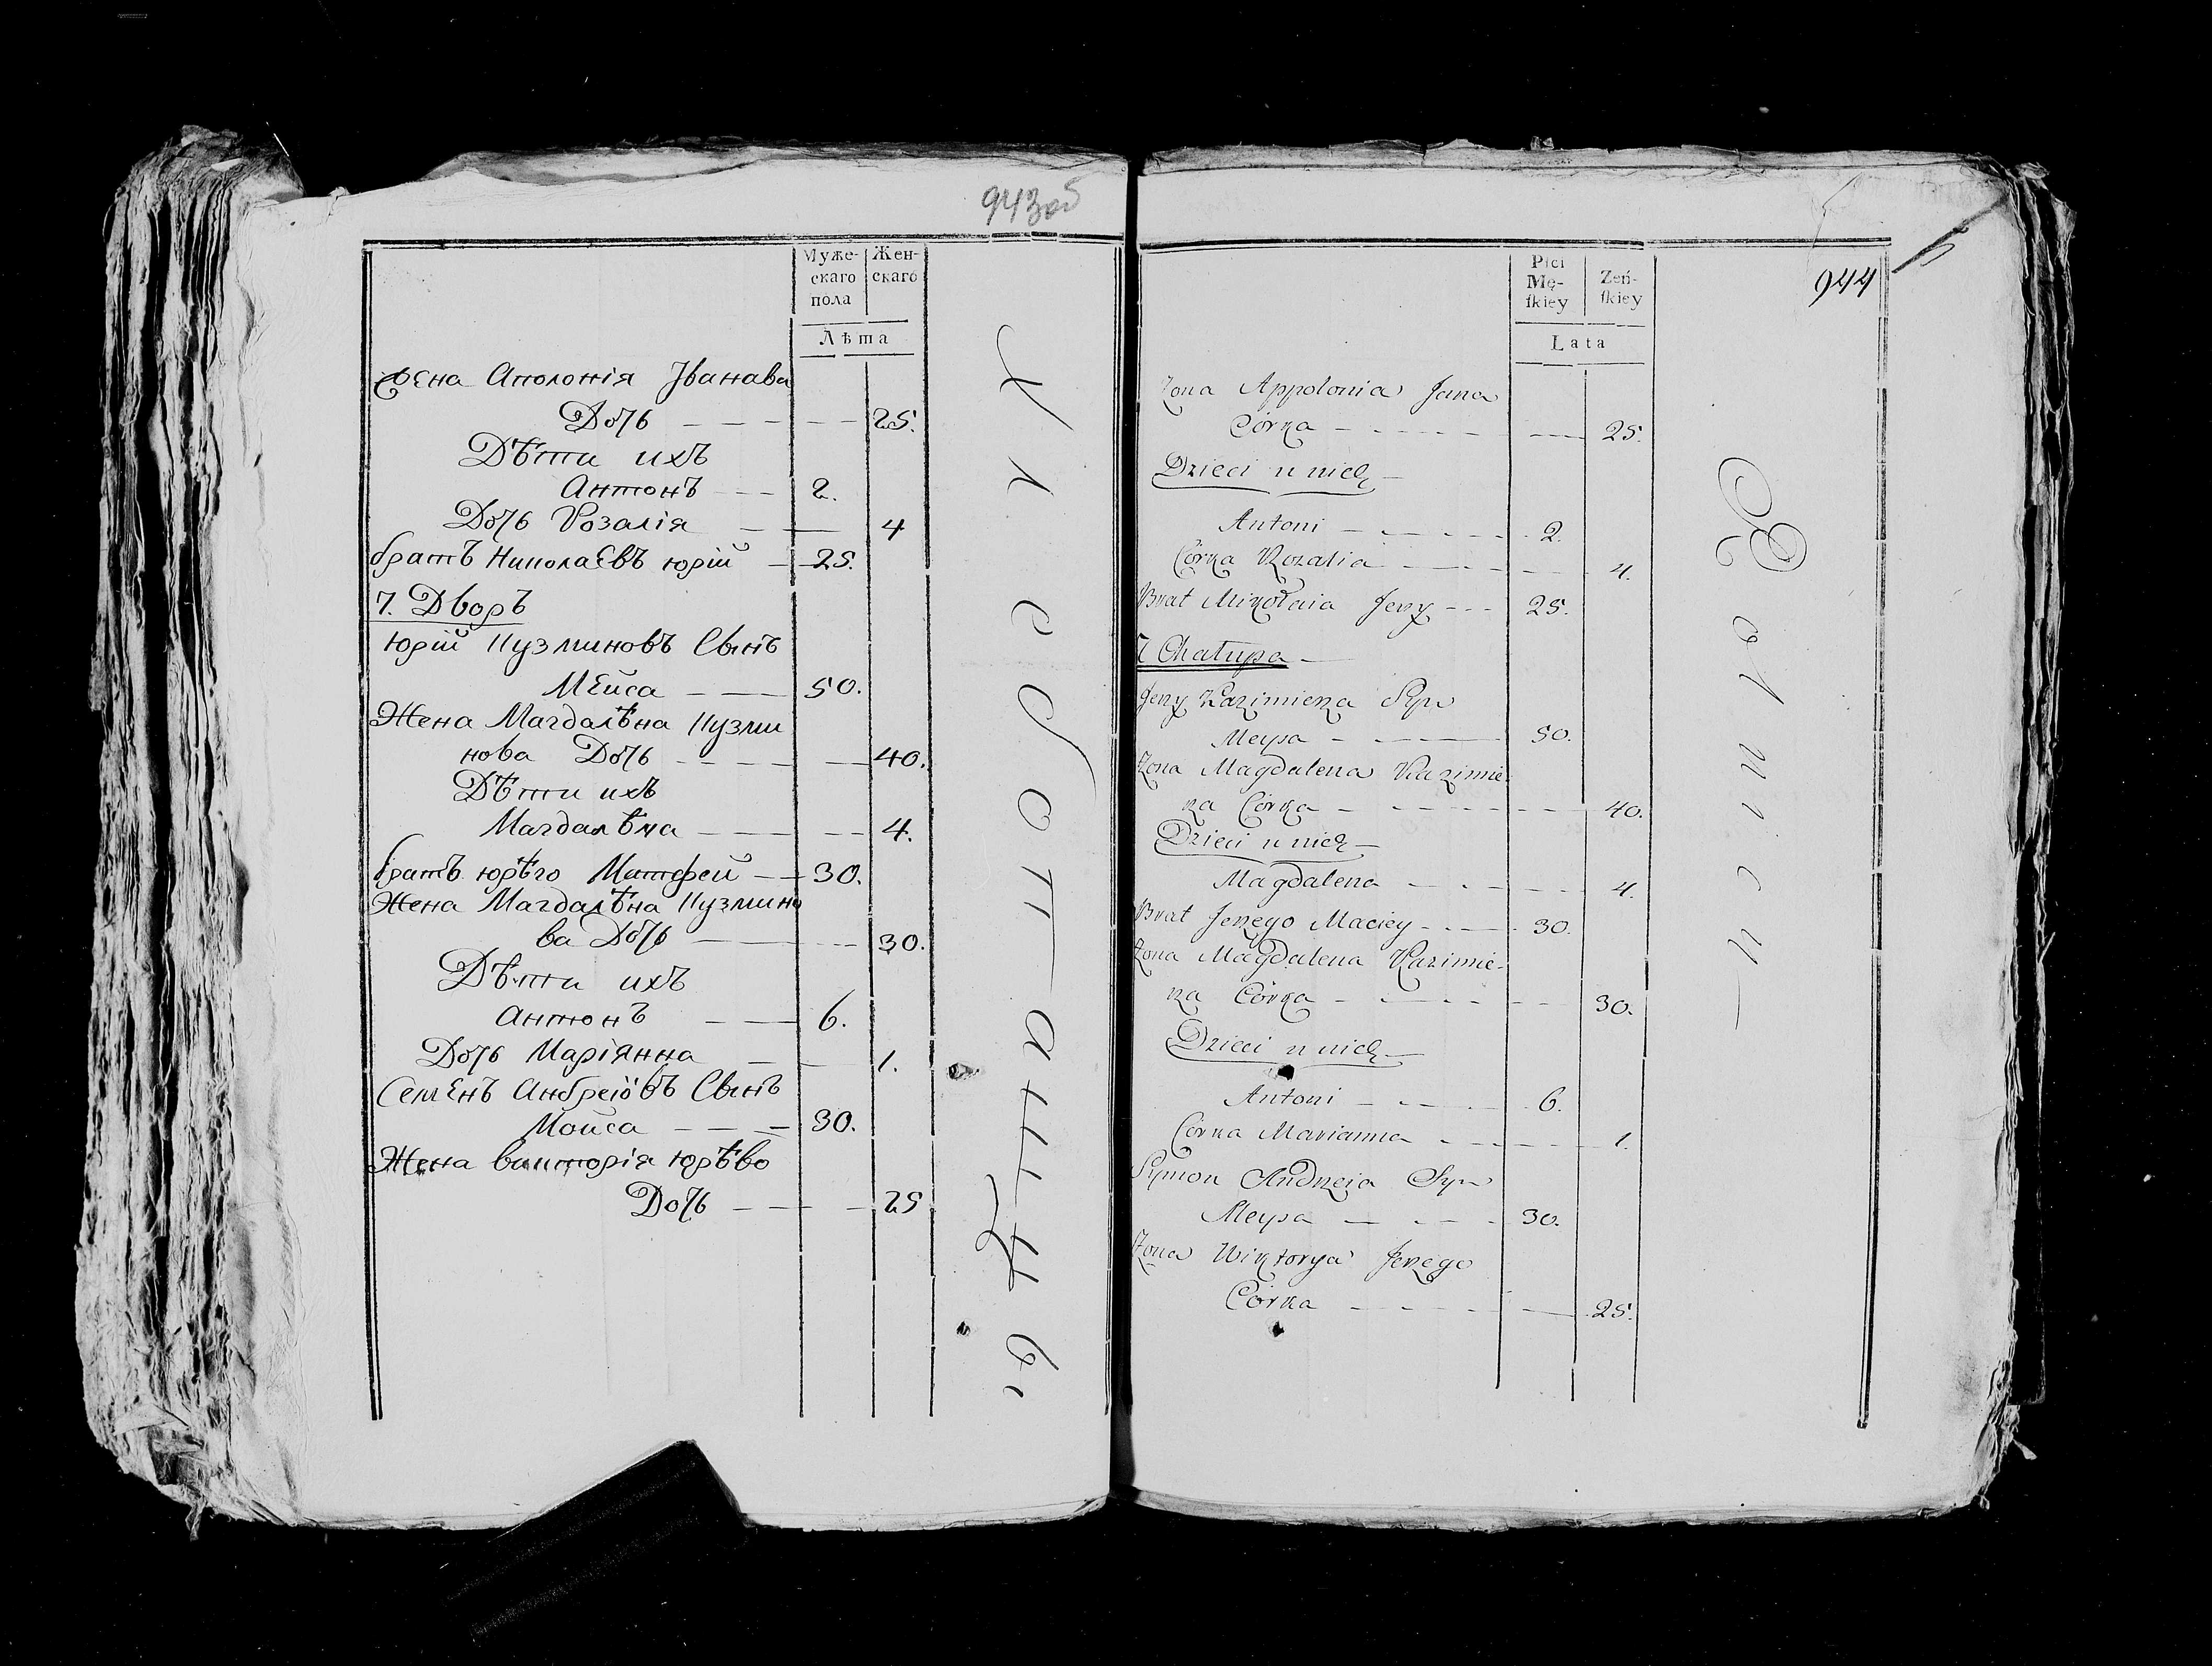 943об
Муже-
скаго
пола
Жен-
скаго
Лѣта
Жена Аполонія Јванава
Дочь — — — 25.
Дѣти ихъ
Антонъ — — 2.
Дочь Розалія — — 4
братъ Николаевъ юрій — 25.
7. Дворъ
юрій Кузминовъ Сынъ
Мейса — — 50.
Жена Магдалѣна Кузми
нова Дочь — — — 40.
Дѣти ихъ
Магдалѣна — — — 4.
братъ юрѣго Матфей — 30.
Жена Магдалѣна Кузмино
ва Дочь — — 30.
Дѣти ихъ
Антонъ — — 6.
Дочь Маріянна — — 1.
Семенъ Андреіовъ Сынъ
Мойса — — — 30.
Жена викторія юрѣво
Дочь — — — 25
944
Płci
Mę-
skiey
Żeń-
skiey
Lata
Żona Appolonia Jana
Córka — — — 25.
Dzieci u nich —
Antoni — — — 2.
Córka Rozalia — — — 4.
Brat Mikołaia Jerzy — — 25.
7 Chałupa —
Jerzy Kazimierza Syn
Meysa — — 50.
Żona Magdalena Kazimie-
rza Córka — — — 40.
Dzieci u nich —
Magdalena — — — 4.
Brat Jerzego Maciey — — 30.
Żona Magdalena Kazimie-
rza Córka — — — 30.
Dzieci u nich —
Antoni — — — 6.
Córka Marianna — — — 1.
Symon Andrzeia Syn
Meysa — — — 30.
Żona Wiktorya Jerzego
Córka — — — 25.